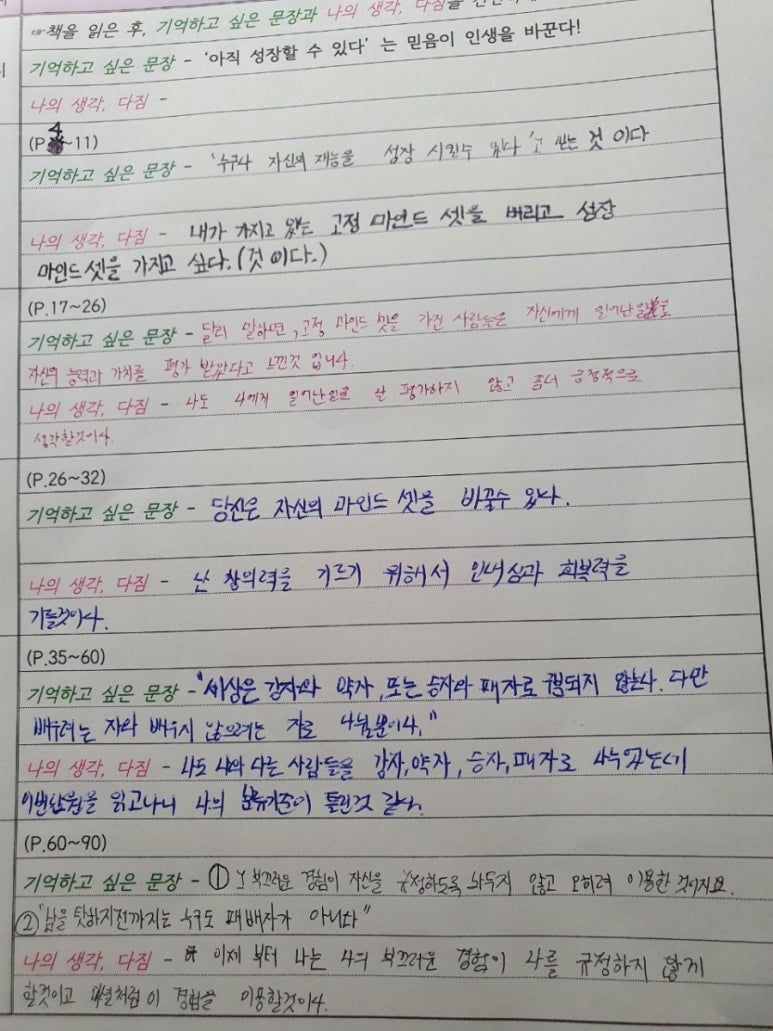 ☞책을 읽은 후, 기억하고 싶은 문장과 나의 생각, 다짐을
기억하고 싶은 문장 - ‘아직 성장할 수 있다’ 는 믿음이 인생을 바꾼다!
나의 생각, 다짐 -
(P.4~11)
기억하고 싶은 문장 - '누구나 자신의 재능을 성장 시킬수 있다'고 믿는 것 이다
나의 생각, 다짐 - 내가 가지고 있는 고정 마인드 셋을 버리고 성장
마인드셋을 가지고 싶다.(것 이다.)
(P.17~26)
기억하고 싶은 문장 - 달리 말하면, 고정 마인드 셋을 가진 사람들은 자신에게 일어난 일로
자신의 능력과 가치를 평가 받았다고 느낀것 입니다.
나의 생각, 다짐 - 나도 나에게 일어난일로 날 평가하지 않고 좀더 긍정적으로
생각할것이다.
(P.26~32)
기억하고 싶은 문장 - 당신은 자신의 마인드 셋을 바꿀수 있다.
나의 생각, 다짐 - 난 창의력을 기르기 위해서 인내심과 회복력을
기를것이다.
(P.35~60)
기억하고 싶은 문장 -"세상은 강자와 약자, 또는 승자와 패자로 구분되지 않는다. 다만
배우려는 자와 배우지 않으려는 자로 나뉠뿐이다."
나의 생각, 다짐 - 나도 나와 다른 사람들을 강자, 약자, 승자, 패자로 나누었는데
이번단원을 읽고나니 나의 분류기준이 틀린것 같다.
(P.60~90)
기억하고 싶은 문장 - ① 그 부끄러운 경험이 자신을 규정하도록 놔두지 않고 오히려 이용한 것이지요.
②"남을 탓하지전까지는 누구도 패배자가 아니다"
나의 생각, 다짐 - 이제 부터 나는 나의 부끄러운 경험이 나를 규정하지 않게
할것이고 이 경험을 이용할것이다.